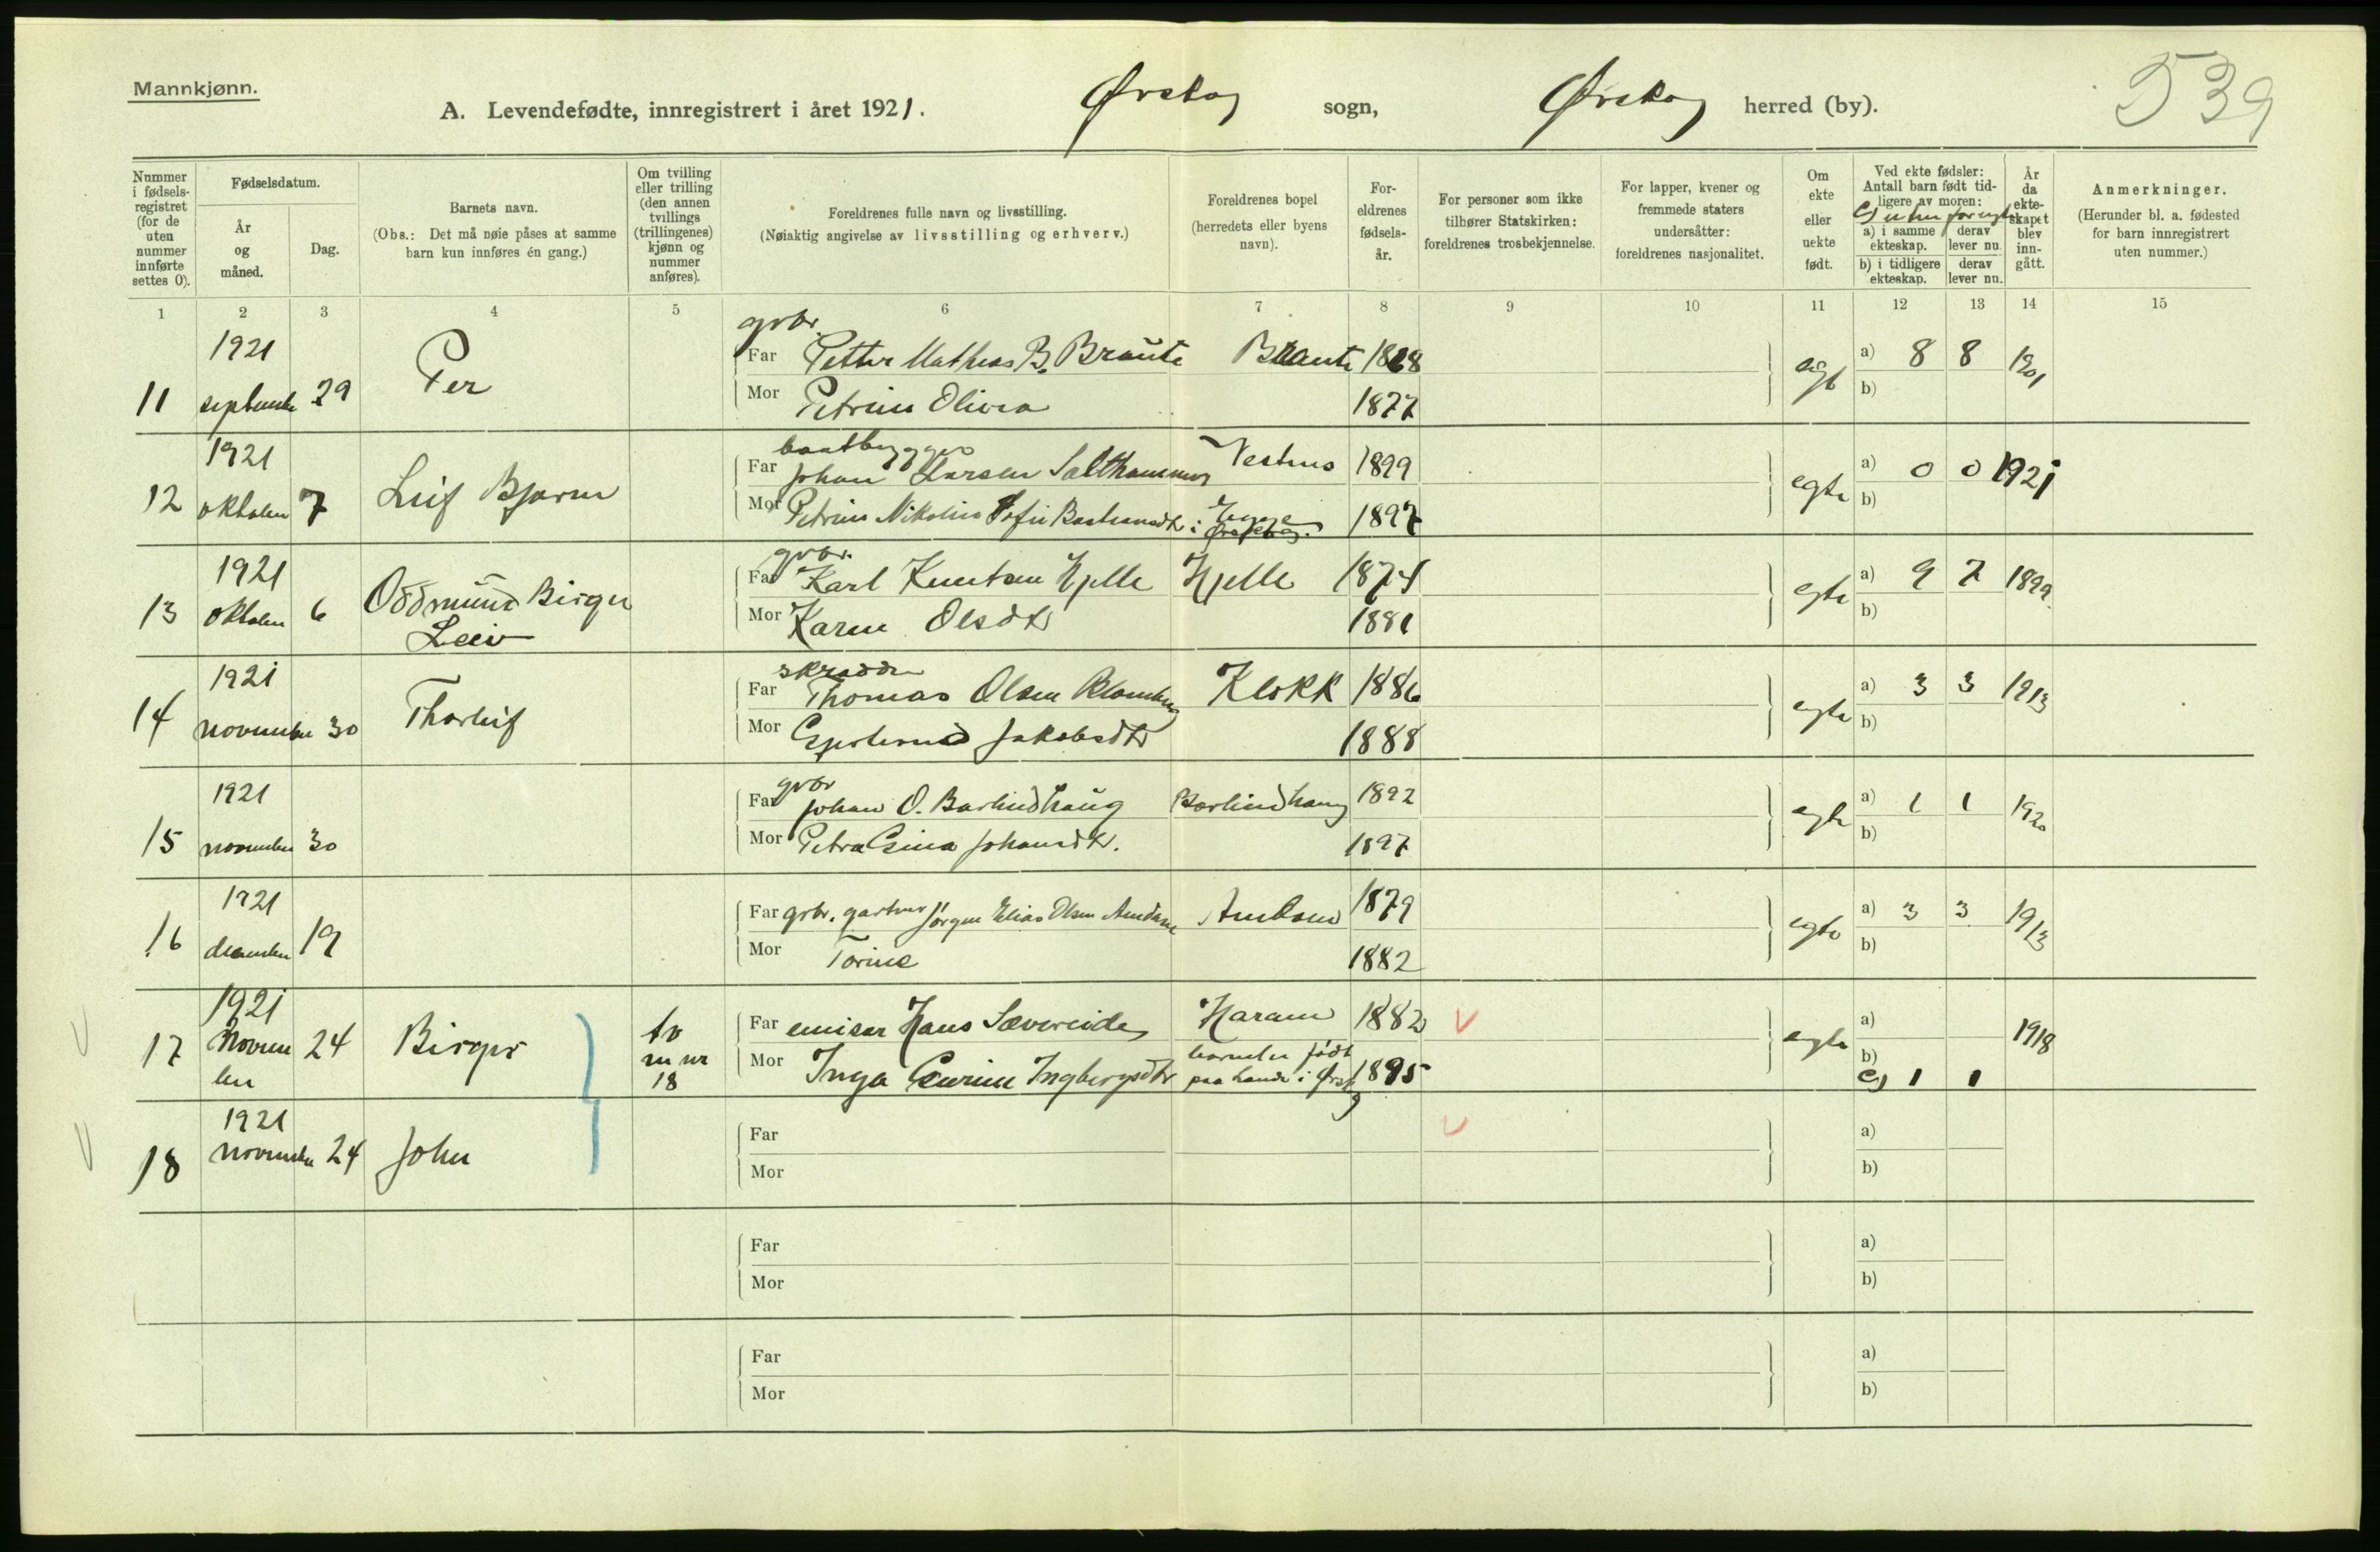 Mannkjønn.
A. Levendefødte, innregistrert i året 1921. Ørskog sogn, Ørskog herred (by).
539
Nummer i fødsels-registret (for de uten nummer innførte settes 0).
Fødselsdatum.
År og måned.
Dag.
Barnets navn.
(Obs.: Det må nøie påses at samme barn kun innføres én gang.)
Om tvilling eller trilling (den annen tvillings (trillingenes) kjønn og nummer anføres).
Foreldrenes fulle navn og livsstilling.
(Nøiaktig angivelse av livsstilling og erhverv.)
Foreldrenes bopel
(herredets eller byens navn).
For-eldrenes fødsels-år.
For personer som ikke tilhører Statskirken: foreldrenes trosbekjennelse.
For lapper, kvener og fremmede staters undersåtter: foreldrenes nasjonalitet.
Om ekte eller uekte født.
Ved ekte fødsler: Antall barn født tid-ligere av moren:
c)
a) i samme ekteskap. derav lever nu.
b) i tidligere ekteskap. derav lever nu.
År da ekte-skapet blev inn-gått.
Anmerkninger.
(Herunder bl. a. fødested for barn innregistrert uten nummer.)
1 2 3 4 5 6 7 8 9 10 11 12 13 14 15
grbr.
1921
11 september 29 Per
Far Petter Mathias B. Braute Braute 1868 egt a) 8 8 1901
Mor Petrine Olivia 1877 b)
1921
12 oktober 7 Leif Bjarne
baatbygger
Far Johan Larsen Salthammer Vestnes 1899 egte a) 0 0 1921
Mor Petrine Nikoline Sofie i Ørskog. 1897 b)
1921
13 oktober 6 Oddmund Birger
Leiv
grbr.
Far Karl Knutsen Hjelle Hjelle 1874 egte a) 9 7 1899
Mor Karen Olsdtr 1881 b)
1921
14 november 30 Thorleif
skrædder
Far Thomas Olsen Klokk 1886 egte a) 3 3 1913
Mor Jakobsdtr 1888 b)
1921
15 november 30
grbr
Far Johan O. Barlindhaug Barlindhaug 1892 egte a) 1 1 1920
Mor Petra Gina Johansdtr. 1897 b)
1921
16 december 19
Far grbr. gartner Jørgen Elias Olsen Amdam Amdam 1879 egte a) 3 3 1913
Mor Torine 1882 b)
1921
17 Novem
ber 24 Birger
tv
m nr
18
Far emisær Hans Sævereide Haram 1882 egte a) 1918
Mor Inga Gurine Ingbergsdtr født paa i Ørskog 1895 b)
c) 1 1
1921
18 november 24 John
Far a)
Mor b)
Far a)
Mor b)
Far a)
Mor b)